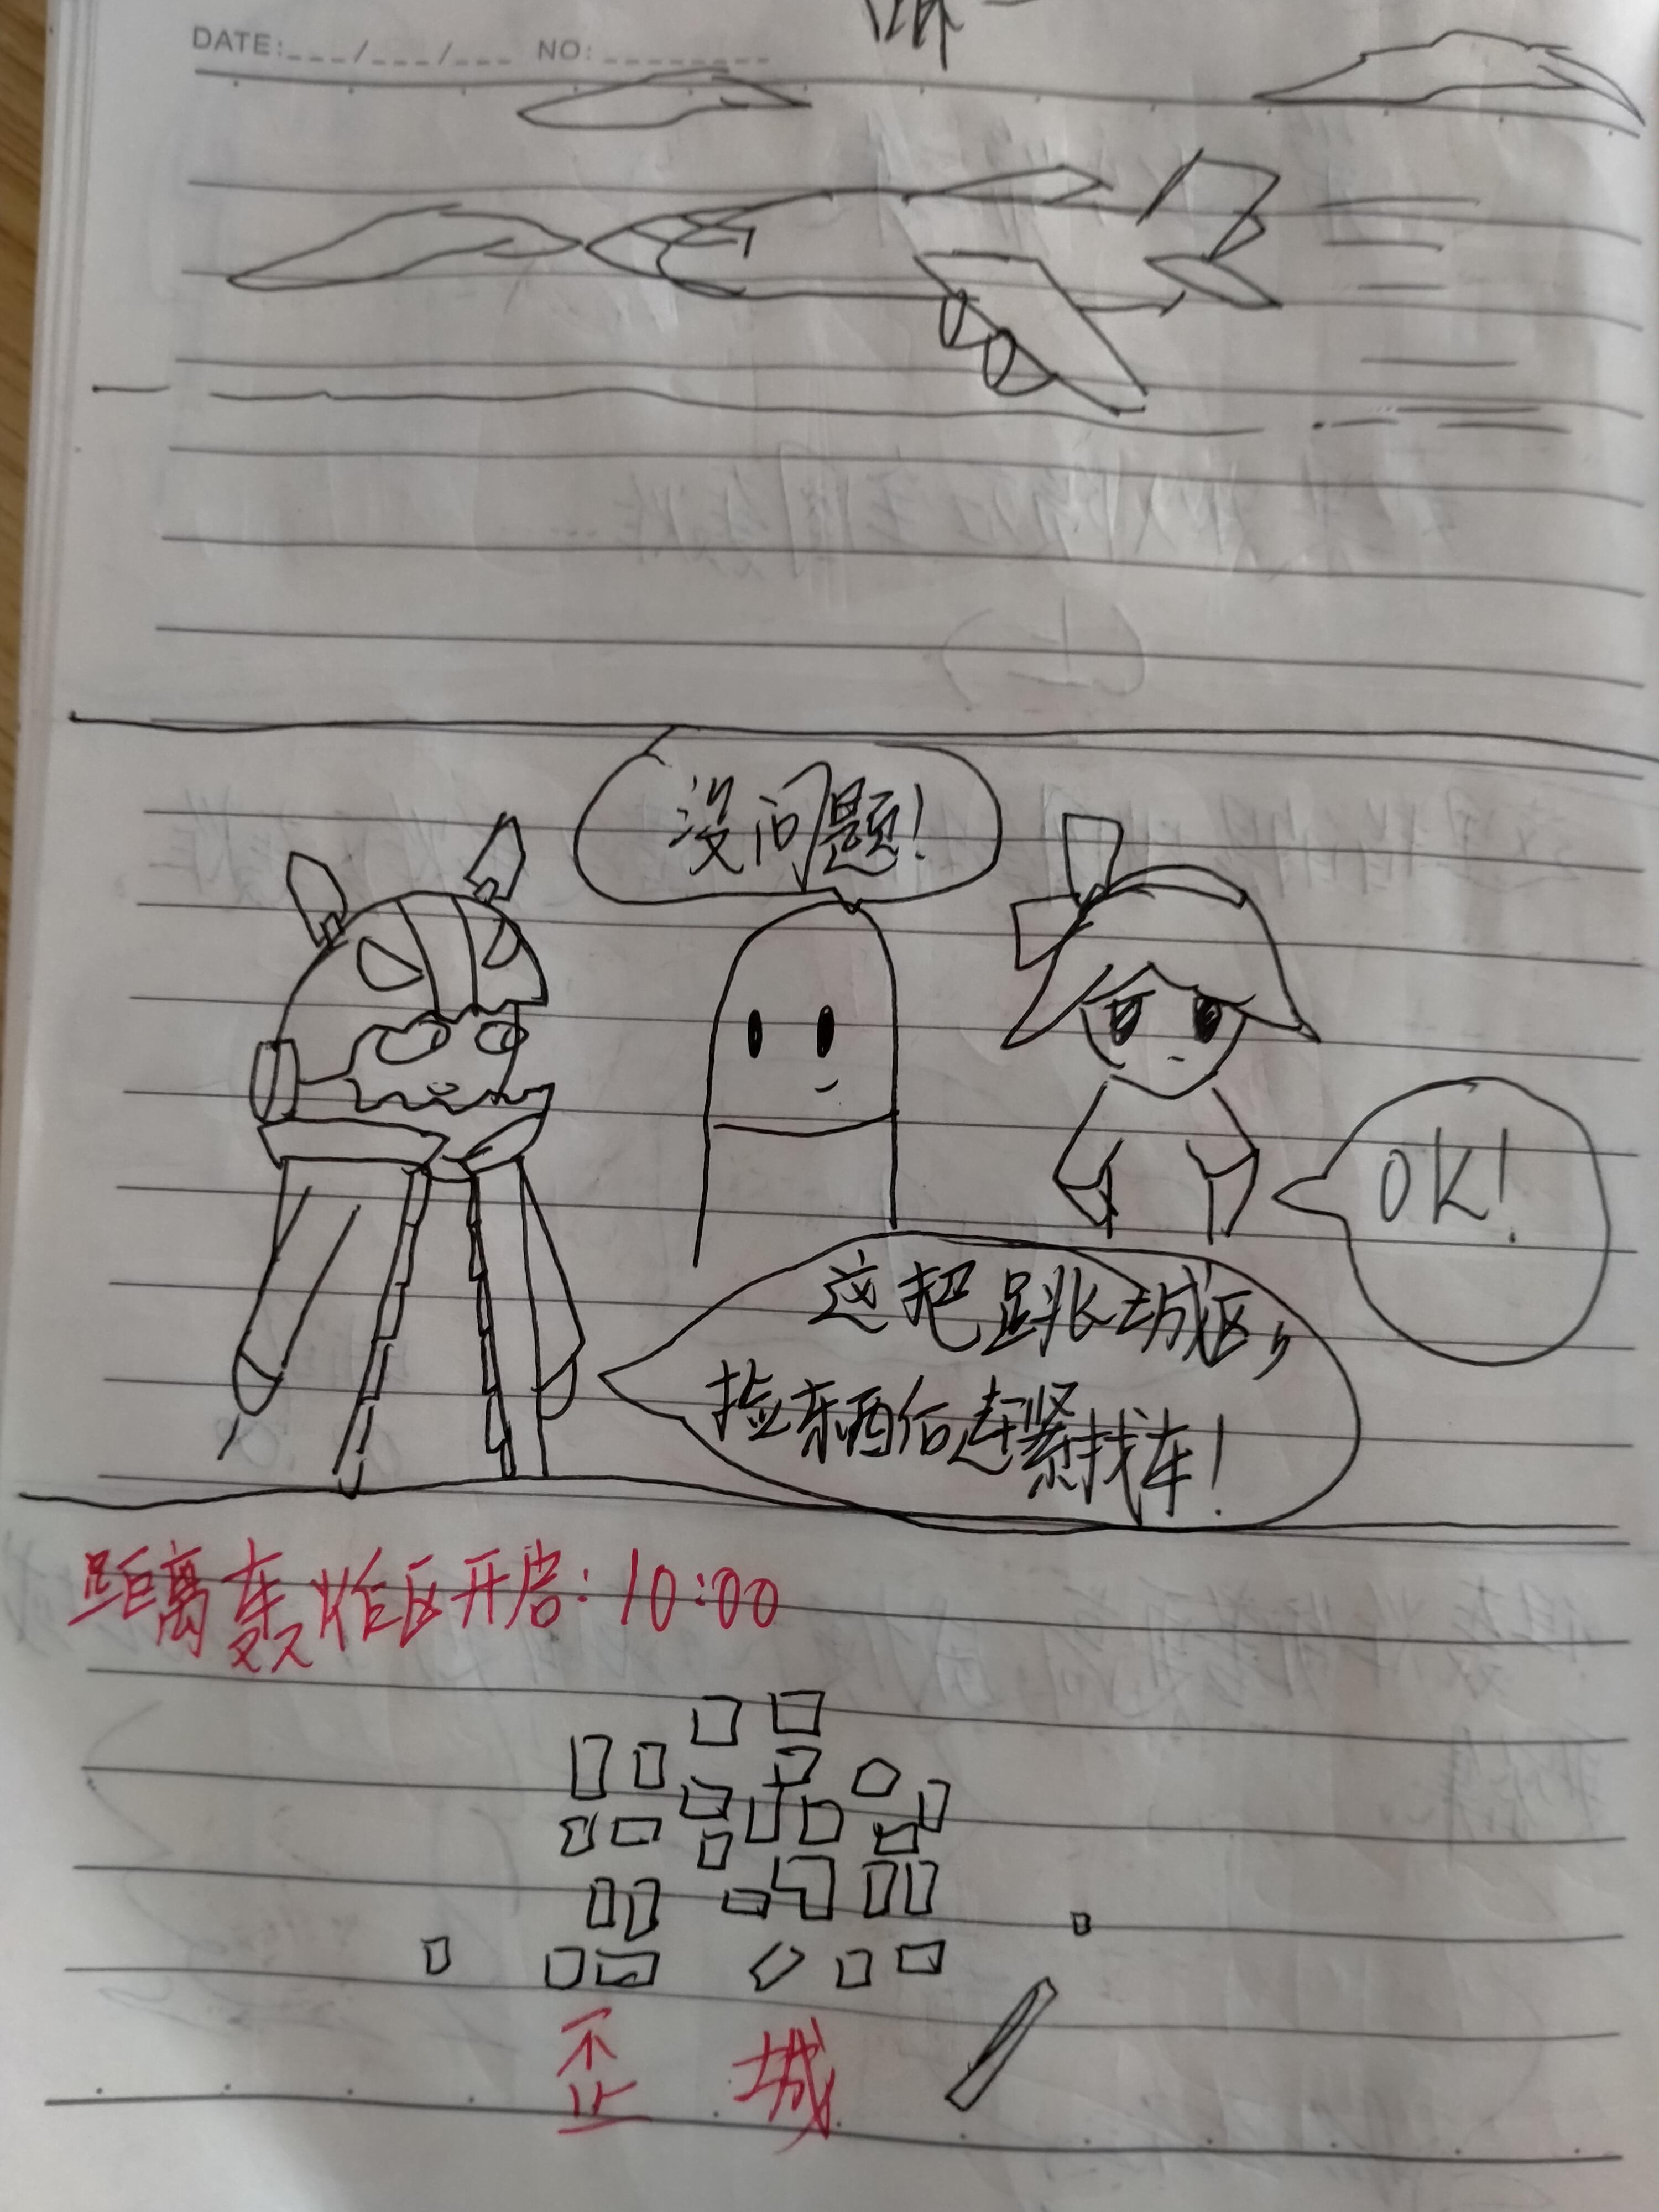 DATE:___/___/___ NO:________
没问题!
OK!
这把跳城区,
捡东西后赶紧找车!
距离轰炸区开启:10:00
歪城